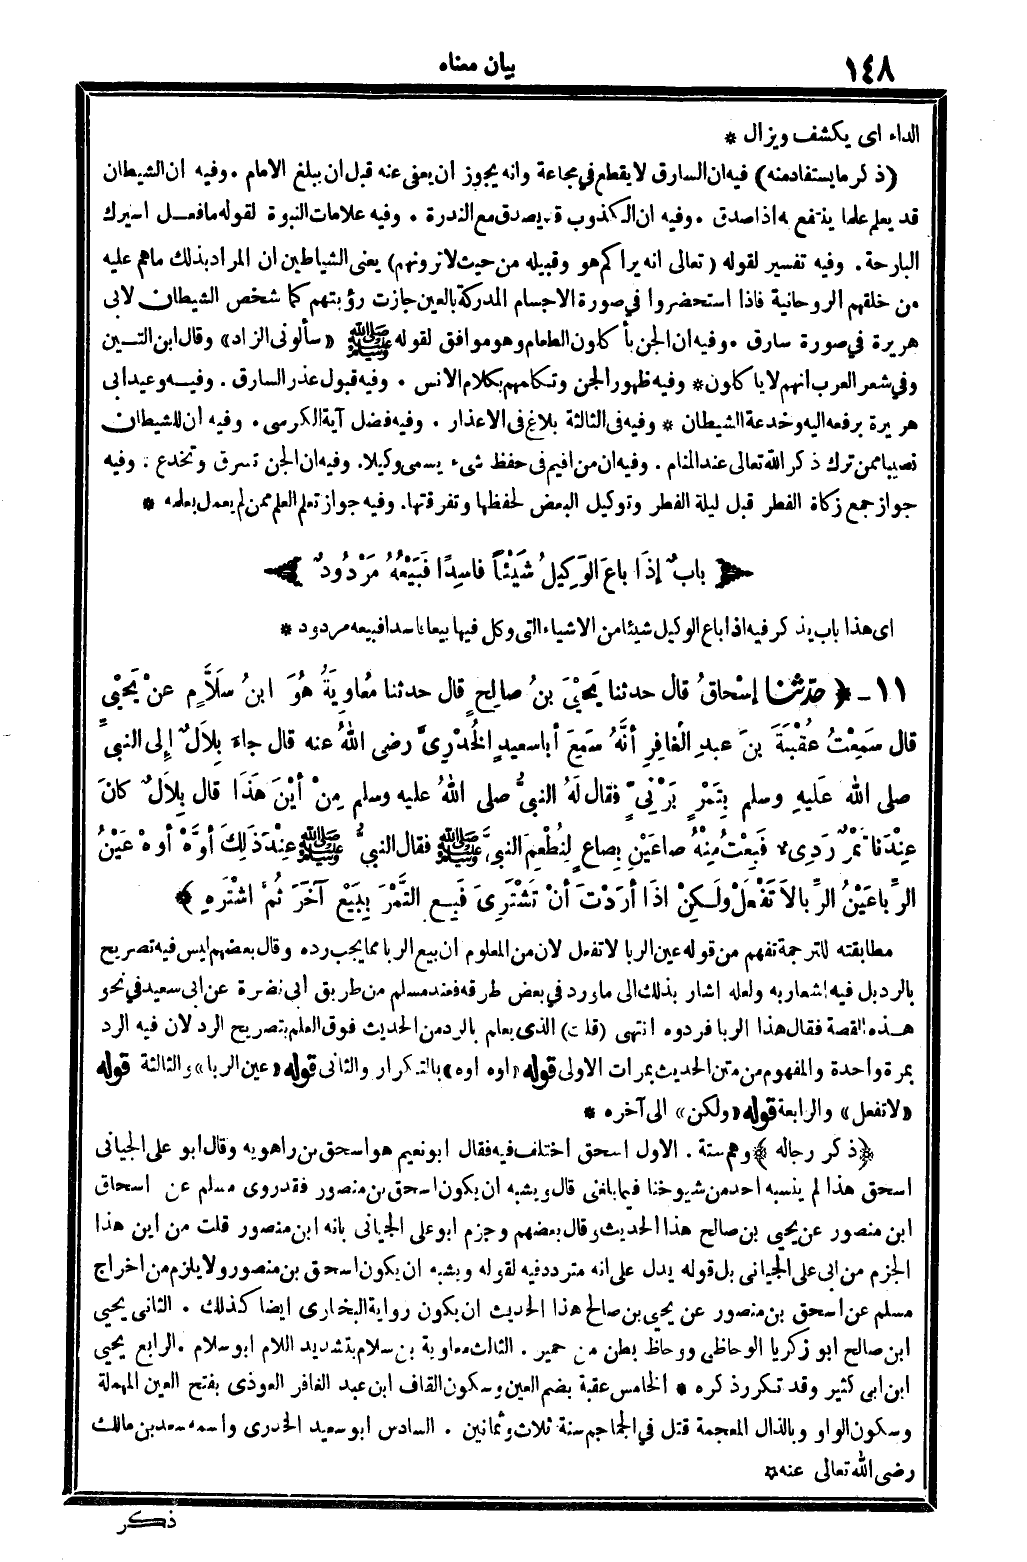 ١٤٨
بيان معناه
الداء اى يكشف ويزال *
(ذكر ما يستفاد منه) فيه ان السارق لا يقطع في مجاعة وانه يجوز ان يعفى عنه قبل ان يبلغ الامام . وفيه ان الشيطان
قد يعلم علما ينتفع به اذا صدق . وفيه ان الكذوب قد يصدق مع الندرة . وفيه علامات النبوة لقوله ما فعل اسيرك
البارحة . وفيه تفسير لقوله (تعالى انه يراكم هو وقبيله من حيث لا ترونهم) يعنى الشياطين ان المراد بذلك ما هم عليه
من خلقهم الروحانية فاذا استحضروا في صورة الاجسام المدركة بالعين جازت رؤيتهم كما شخص الشيطان لابى
هريرة في صورة سارق . وفيه ان الجن يأكلون الطعام وهو موافق لقوله ﷺ «سألونى الزاد» وقال ابن التين
وفي شعر العرب انهم لا ياكلون * وفيه ظهور الجن وتكلمهم بكلام الانس . وفيه قبول عذر السارق . وفيه وعيد ابى
هريرة برفعه اليه وخدعة الشيطان * وفيه فى الثالثة بلاغ فى الاعذار . وفيه فضل آية الكرسى . وفيه ان للشيطان
نصيبا ممن ترك ذكر الله تعالى عند المنام . وفيه ان من اقيم فى حفظ شىء يسمى وكيلا . وفيه ان الجن تسرق وتخدع . وفيه
جواز جمع زكاة الفطر قبل ليلة الفطر وتوكيل البعض لحفظها وتفرقتها . وفيه جواز تعلم العلم ممن لم يعمل بعلمه *
بابٌ إِذَا باعَ الوَكِيلُ شَيْئًا فاسِدًا فَبَيْعُهُ مَرْدُودٌ
اى هذا باب يذكر فيه اذا باع الوكيل شيئا من الاشياء التى وكل فيها بيعا فاسدا فبيعه مردود *
١١ - ﴿ حدّثنا إِسْحاقُ قال حدثنا يَحْيَى بنُ صالِحٍ قال حدثنا مُعاوِيَةُ هُوَ ابنُ سَلَّامٍ عنْ يَحْيَى
قال سَمِعْتُ عُقْبَةَ بنَ عبدِ الغافِرِ أنَّهُ سَمِعَ أباسعيدٍ الخُدْرِىَّ رضى اللهُ عنه قال جاءَ بِلَالٌ إِلى النبىِّ
صلى الله عَلَيهِ وسلم بِتَمْرٍ بَرْنِىٍّ فقال لَهُ النبىُّ صلى اللهُ عليه وسلم مِنْ أيْنَ هَذَا قال بِلَالٌ كانَ
عِنْدَنا تَمْرٌ رَدِىءٌ فَبِعْتُ مِنْهُ صاعَيْنِ بِصاعٍ لِنُطْعِمَ النبىَّ ﷺ فقال النبىُّ ﷺ عِنْدَ ذَلِكَ أوَّهْ أوهْ عَيْنُ
الرِّبا عَيْنُ الرِّبا لاَ تَفْعَلْ ولَكِنْ اذَا أرَدْتَ أنْ تَشْتَرِىَ فَبِعِ التَّمْرَ بِبَيْعٍ آخَرَ ثُمَّ اشْتَرِهِ ﴾
مطابقته للترجمة تفهم من قوله عين الربا لا تفعل لان من المعلوم ان بيع الربا مما يجب رده وقال بعضهم ليس فيه تصريح
بالرد بل فيه اشعار به ولعله اشار بذلك الى ما ورد في بعض طرقه فعند مسلم من طريق أبى نضرة عن ابى سعيد فى نحو
هذه القصة فقال هذا الربا فردوه انتهى (قلت) الذى يعلم بالرد من الحديث فوق العلم بتصريح الرد لان فيه الرد
بمرة واحدة والمفهوم من متن الحديث بمرات الاولى قوله «اوه اوه» بالتكرار والثانى قوله «عين الربا» والثالثة قوله
«لا تفعل» والرابعة قوله «ولكن» الى آخره *
﴿ذكر رجاله﴾ وهم ستة . الاول اسحق اختلف فيه فقال ابو نعيم هو اسحق بن راهويه وقال ابو على الجيانى
اسحق هذا لم ينسبه احد من شيوخنا فيما بلغنى قال ويشبه ان يكون اسحق بن منصور فقد روى مسلم عن اسحاق
ابن منصور عن يحيى بن صالح هذا الحديث وقال بعضهم وجزم ابو على الجيانى بانه ابن منصور قلت من اين هذا
الجزم من ابى على الجيانى بل قوله يدل على انه متردد فيه لقوله ويشبه ان يكون اسحق بن منصور ولا يلزم من اخراج
مسلم عن اسحق بن منصور عن يحيى بن صالح هذا الحديث ان يكون رواية البخارى ايضا كذلك . الثانى يحيى
ابن صالح ابو زكريا الوحاظى ووحاظ بطن من حمير . الثالث معاوية بن سلام بتشديد اللام ابو سلام . الرابع يحيى
ابن ابى كثير وقد تكرر ذكره * الخامس عقبة بضم العين وسكون القاف ابن عبد الغافر العوذى بفتح العين المهملة
وسكون الواو وبالذال المعجمة قتل في الجماجم سنة ثلاث وثمانين . السادس ابو سعيد الخدرى واسمه سعد بن مالك
رضى الله تعالى عنه *
ذكر